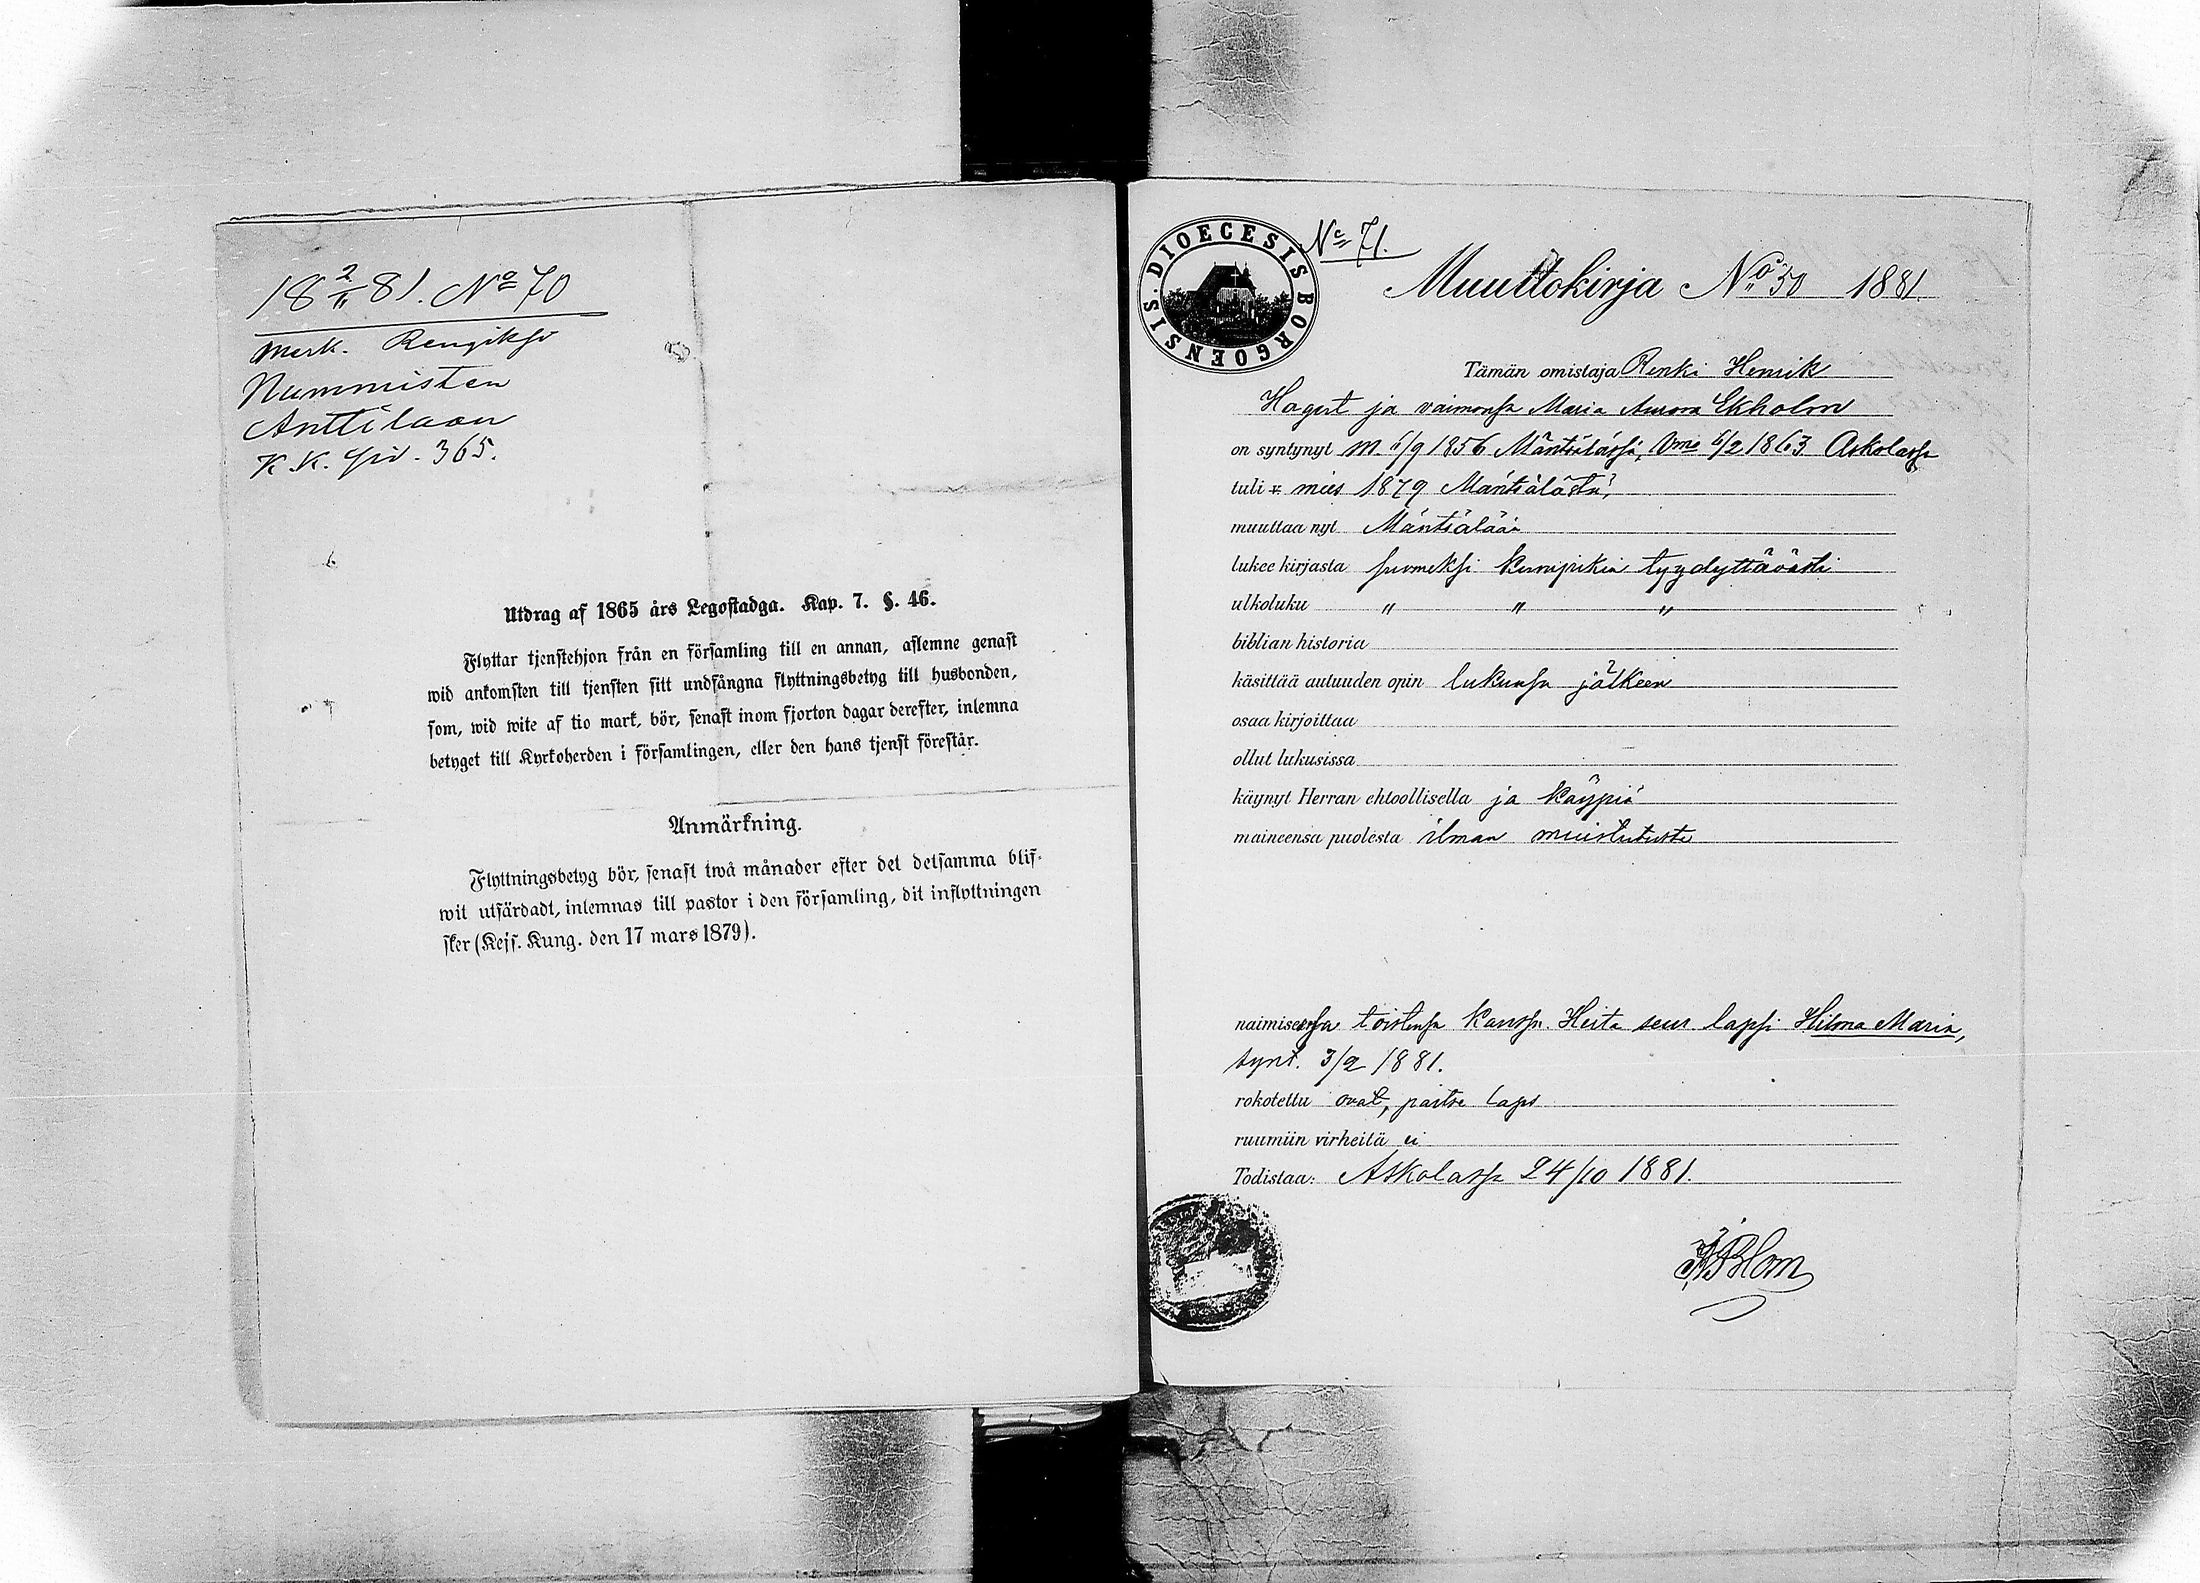 18 2/11 81. No 70
Merk. Rengiksi
Nummisten
Anttilaan
K. K. siv. 365.
Utdrag af 1865 års Legostadga. Kap. 7. §. 46.
Flyttar tjenstehjon från en församling till en annan, aflemne genast
wid ankomsten till tjensten sitt undfångna flyttningsbetyg till husbonden,
som, wid wite af tio mark, bör, senast inom fjorton dagar derefter, inlemna
betyget till Kyrkoherden i församlingen, eller den hans tjenst förestår.
Anmärkning.
Flyttningsbetyg bör, senast två månader efter det detsamma blif-
wit utfärdadt, inlemnas till pastor i den församling, dit inflyttningen
sker (Kejs. Kung. den 17 mars 1879).
DIOECESIS BORGOENSIS.
No 71.
Muuttokirja No 50 1881.
Tämän omistaja Renki Henrik
Hagert ja vaimonsa Maria Aurora Ekholm
on syntynyt m. 6/9 1856 Mäntsälässä, Vmo 5/2 1863 Askolassa
tuli mies 1879 Mäntsälästä,
muuttaa nyt Mäntsälään
lukee kirjasta suomeksi kumpikin tyydyttävästi
ulkoluku " " "
biblian historia
käsittää autuuden opin lukunsa jälkeen
osaa kirjoittaa
ollut lukusissa
käynyt Herran ehtoollisella ja käypiä
maineensa puolesta ilman muistutusta
naimisessa toistensa kanssa. Heitä seur. lapsi Hilma Maria,
synt. 3/2 1881.
rokotettu ovat, paitse laps
ruumiin virheitä ei
Todistaa: Askolassa 24/10 1881.
Blom